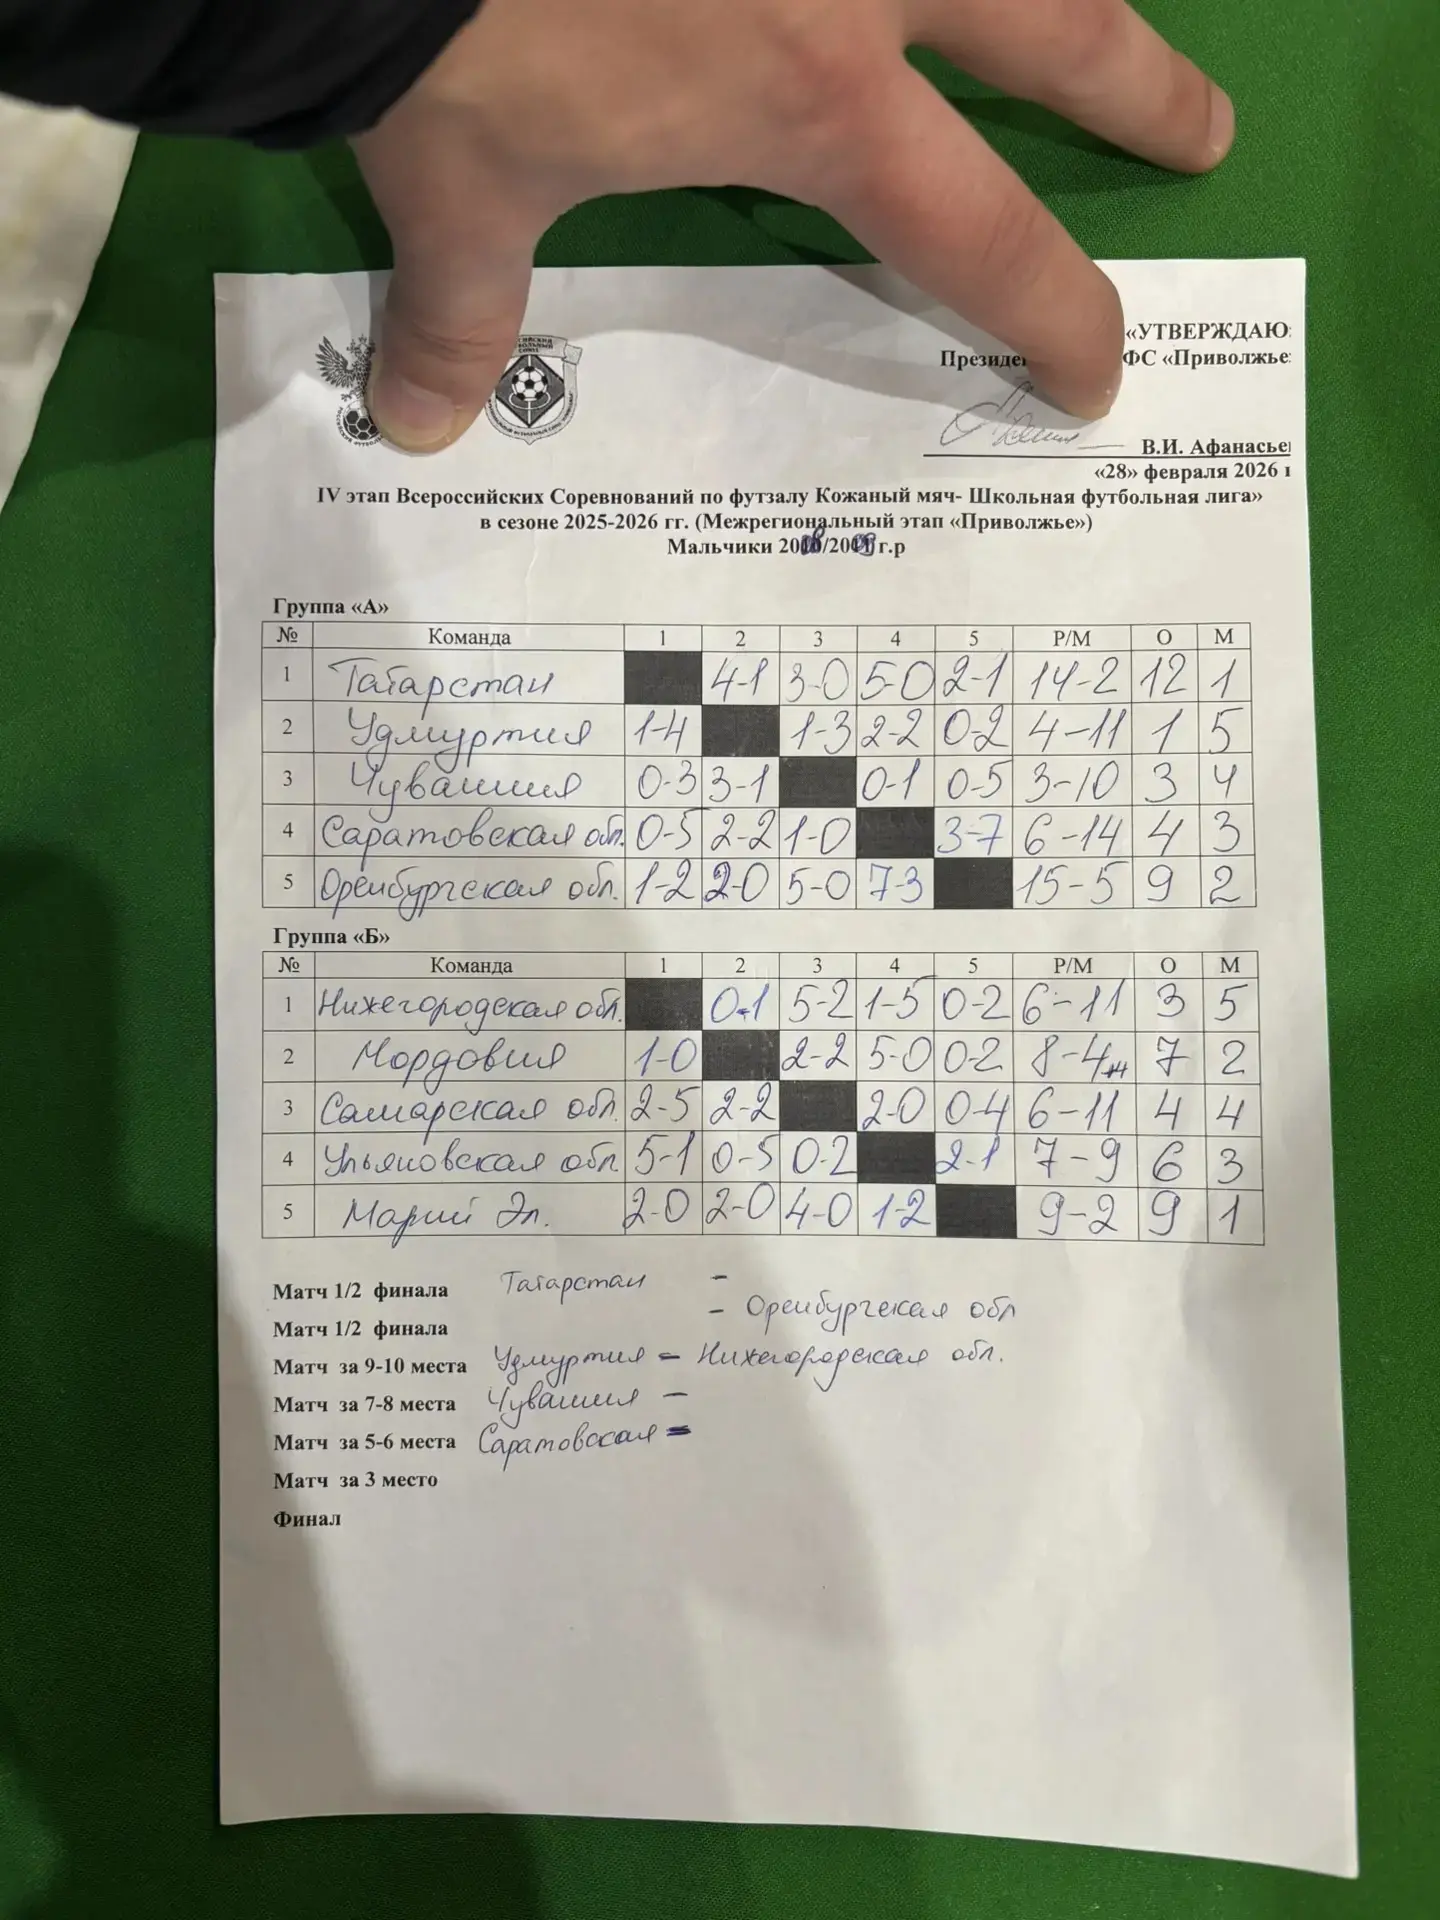 «УТВЕРЖДАЮ
ФС «Приволжье
В.И. Афанасье
«28» февраля 2026 г
IV этап Всероссийских Соревнований по футзалу Кожаный мяч- Школьная футбольная лига»
в сезоне 2025-2026 гг. (Межрегиональный этап «Приволжье»)
Мальчики 2008/2009 г.р
Группа «А»
№ Команда 1 2 3 4 5 Р/М О М
1 Татарстан 4-1 3-0 5-0 2-1 14-2 12 1
2 Удмуртия 1-4 1-3 2-2 0-2 4-11 1 5
3 Чувашия 0-3 3-1 0-1 0-5 3-10 3 4
4 Саратовская обл. 0-5 2-2 1-0 3-7 6-14 4 3
5 Оренбургская обл. 1-2 2-0 5-0 7-3 15-5 9 2
Группа «Б»
№ Команда 1 2 3 4 5 Р/М О М
1 Нижегородская обл. 0-1 5-2 1-5 0-2 6-11 3 5
2 Мордовия 1-0 2-2 5-0 0-2 8-4 7 2
3 Самарская обл. 2-5 2-2 2-0 0-4 6-11 4 4
4 Ульяновская обл 5-1 0-5 0-2 2-1 7-9 6 3
5 Марий Эл. 2-0 2-0 4-0 1-2 9-2 9 1
Матч 1/2 финала Татарстан -
Матч 1/2 финала - Оренбургская обл
Матч за 9-10 места Удмуртия - Нижегородская обл.
Матч за 7-8 места Чувашия -
Матч за 5-6 места Саратовская -
Матч за 3 место
Финал